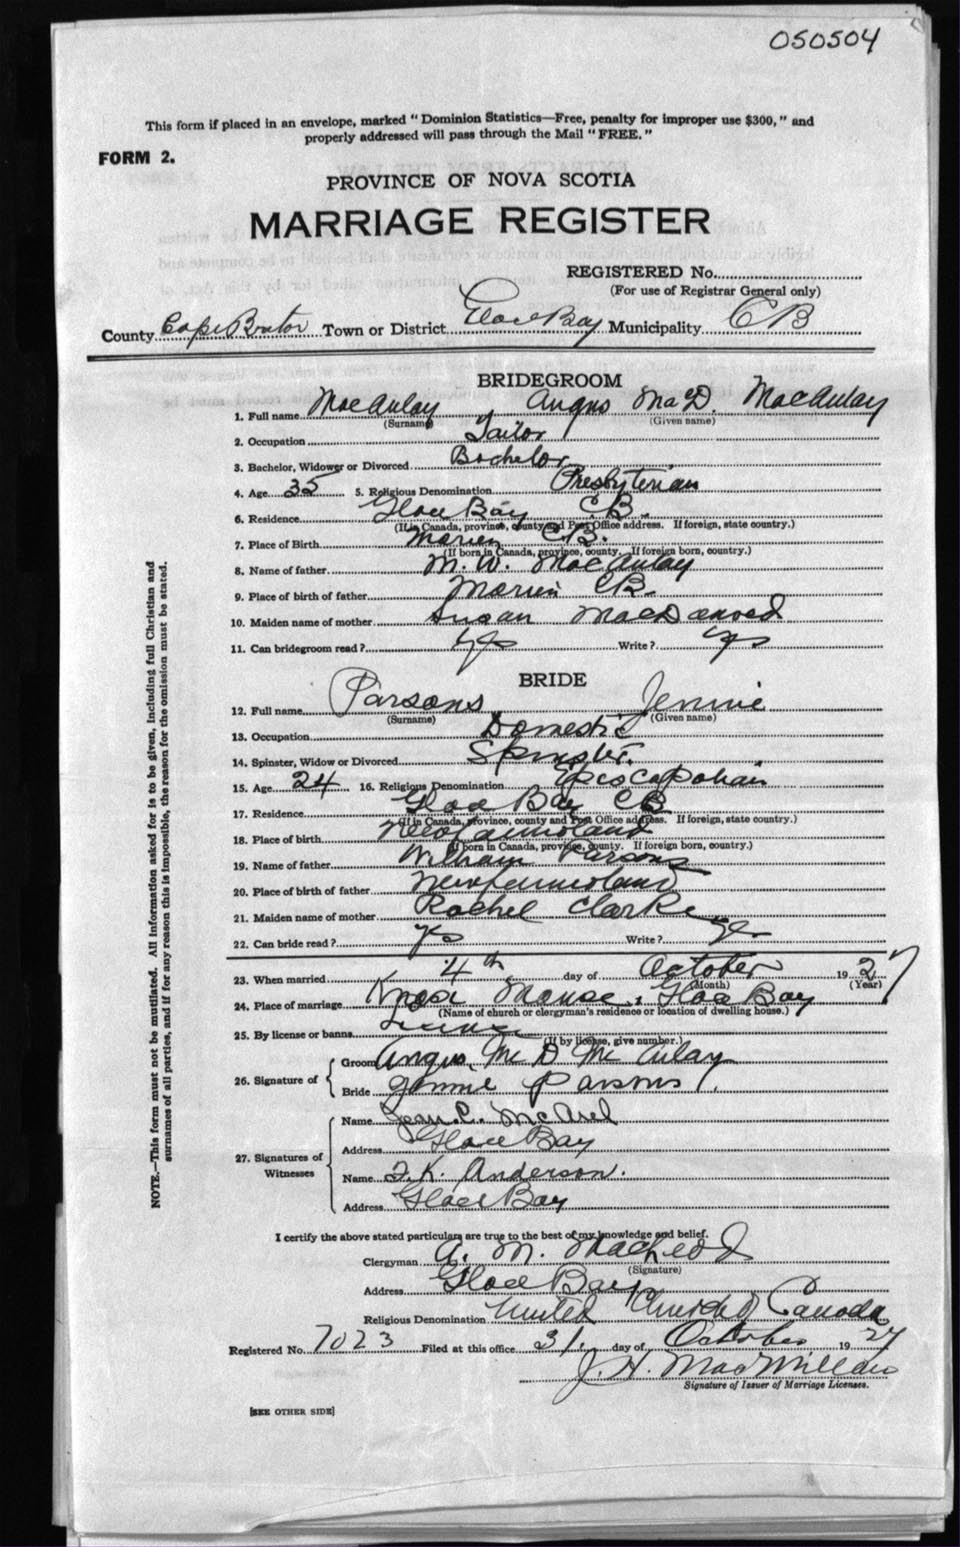 050504
This form if placed in an envelope, marked "Dominion Statistics—Free, penalty for improper use $300," and
properly addressed will pass through the Mail "FREE."
FORM 2.
PROVINCE OF NOVA SCOTIA
MARRIAGE REGISTER
REGISTERED No.
(For use of Registrar General only)
County Cape Breton Town or District Glace Bay Municipality CB
BRIDEGROOM
1. Full name MacAulay Angus McD. MacAulay
(Surname) (Given name)
2. Occupation Tailor
3. Bachelor, Widower or Divorced Bachelor
4. Age 35 5. Religious Denomination Presbyterian
6. Residence Glace Bay C.B.
(If in Canada, province, county and Post Office address. If foreign, state country.)
7. Place of Birth Marion CB.
(If born in Canada, province, county. If foreign born, country.)
8. Name of father M. W. MacAulay
9. Place of birth of father Marion CB.
10. Maiden name of mother Susan MacDonald
11. Can bridegroom read? yes Write? yes
BRIDE
12. Full name Parsons Jennie
(Surname) (Given name)
13. Occupation Domestic
14. Spinster, Widow or Divorced Spinster.
15. Age 24 16. Religious Denomination Episcopalian
17. Residence Glace Bay CB
(If in Canada, province, county and Post Office address. If foreign, state country.)
18. Place of birth Newfoundland
(If born in Canada, province, county. If foreign born, country.)
19. Name of father William Parsons
20. Place of birth of father Newfoundland
21. Maiden name of mother Rachel Clarke
22. Can bride read? yes Write? yes
23. When married 4th day of October 1927
(Month) (Year)
24. Place of marriage Knox Manse, Glace Bay
(Name of church or clergyman's residence or location of dwelling house.)
25. By license or banns License
(If by license, give number.)
26. Signature of
Groom Angus Mc D Mc Aulay
Bride Jennie Parsons
27. Signatures of Witnesses
Name Jean C.
Address Glace Bay
Name K. Anderson.
Address Glace Bay
I certify the above stated particulars are true to the best of my knowledge and belief.
Clergyman A. M. MacLeod
(Signature)
Address Glace Bay
Religious Denomination United Church of Canada
Registered No. 7023 Filed at this office 31 day of October 1927
J. H. MacMillan
Signature of Issuer of Marriage Licenses.
[SEE OTHER SIDE]
NOTE.—This form must not be mutilated. All information asked for is to be given, including full Christian and
surnames of all parties, and if for any reason this is impossible, the reason for the omission must be stated.